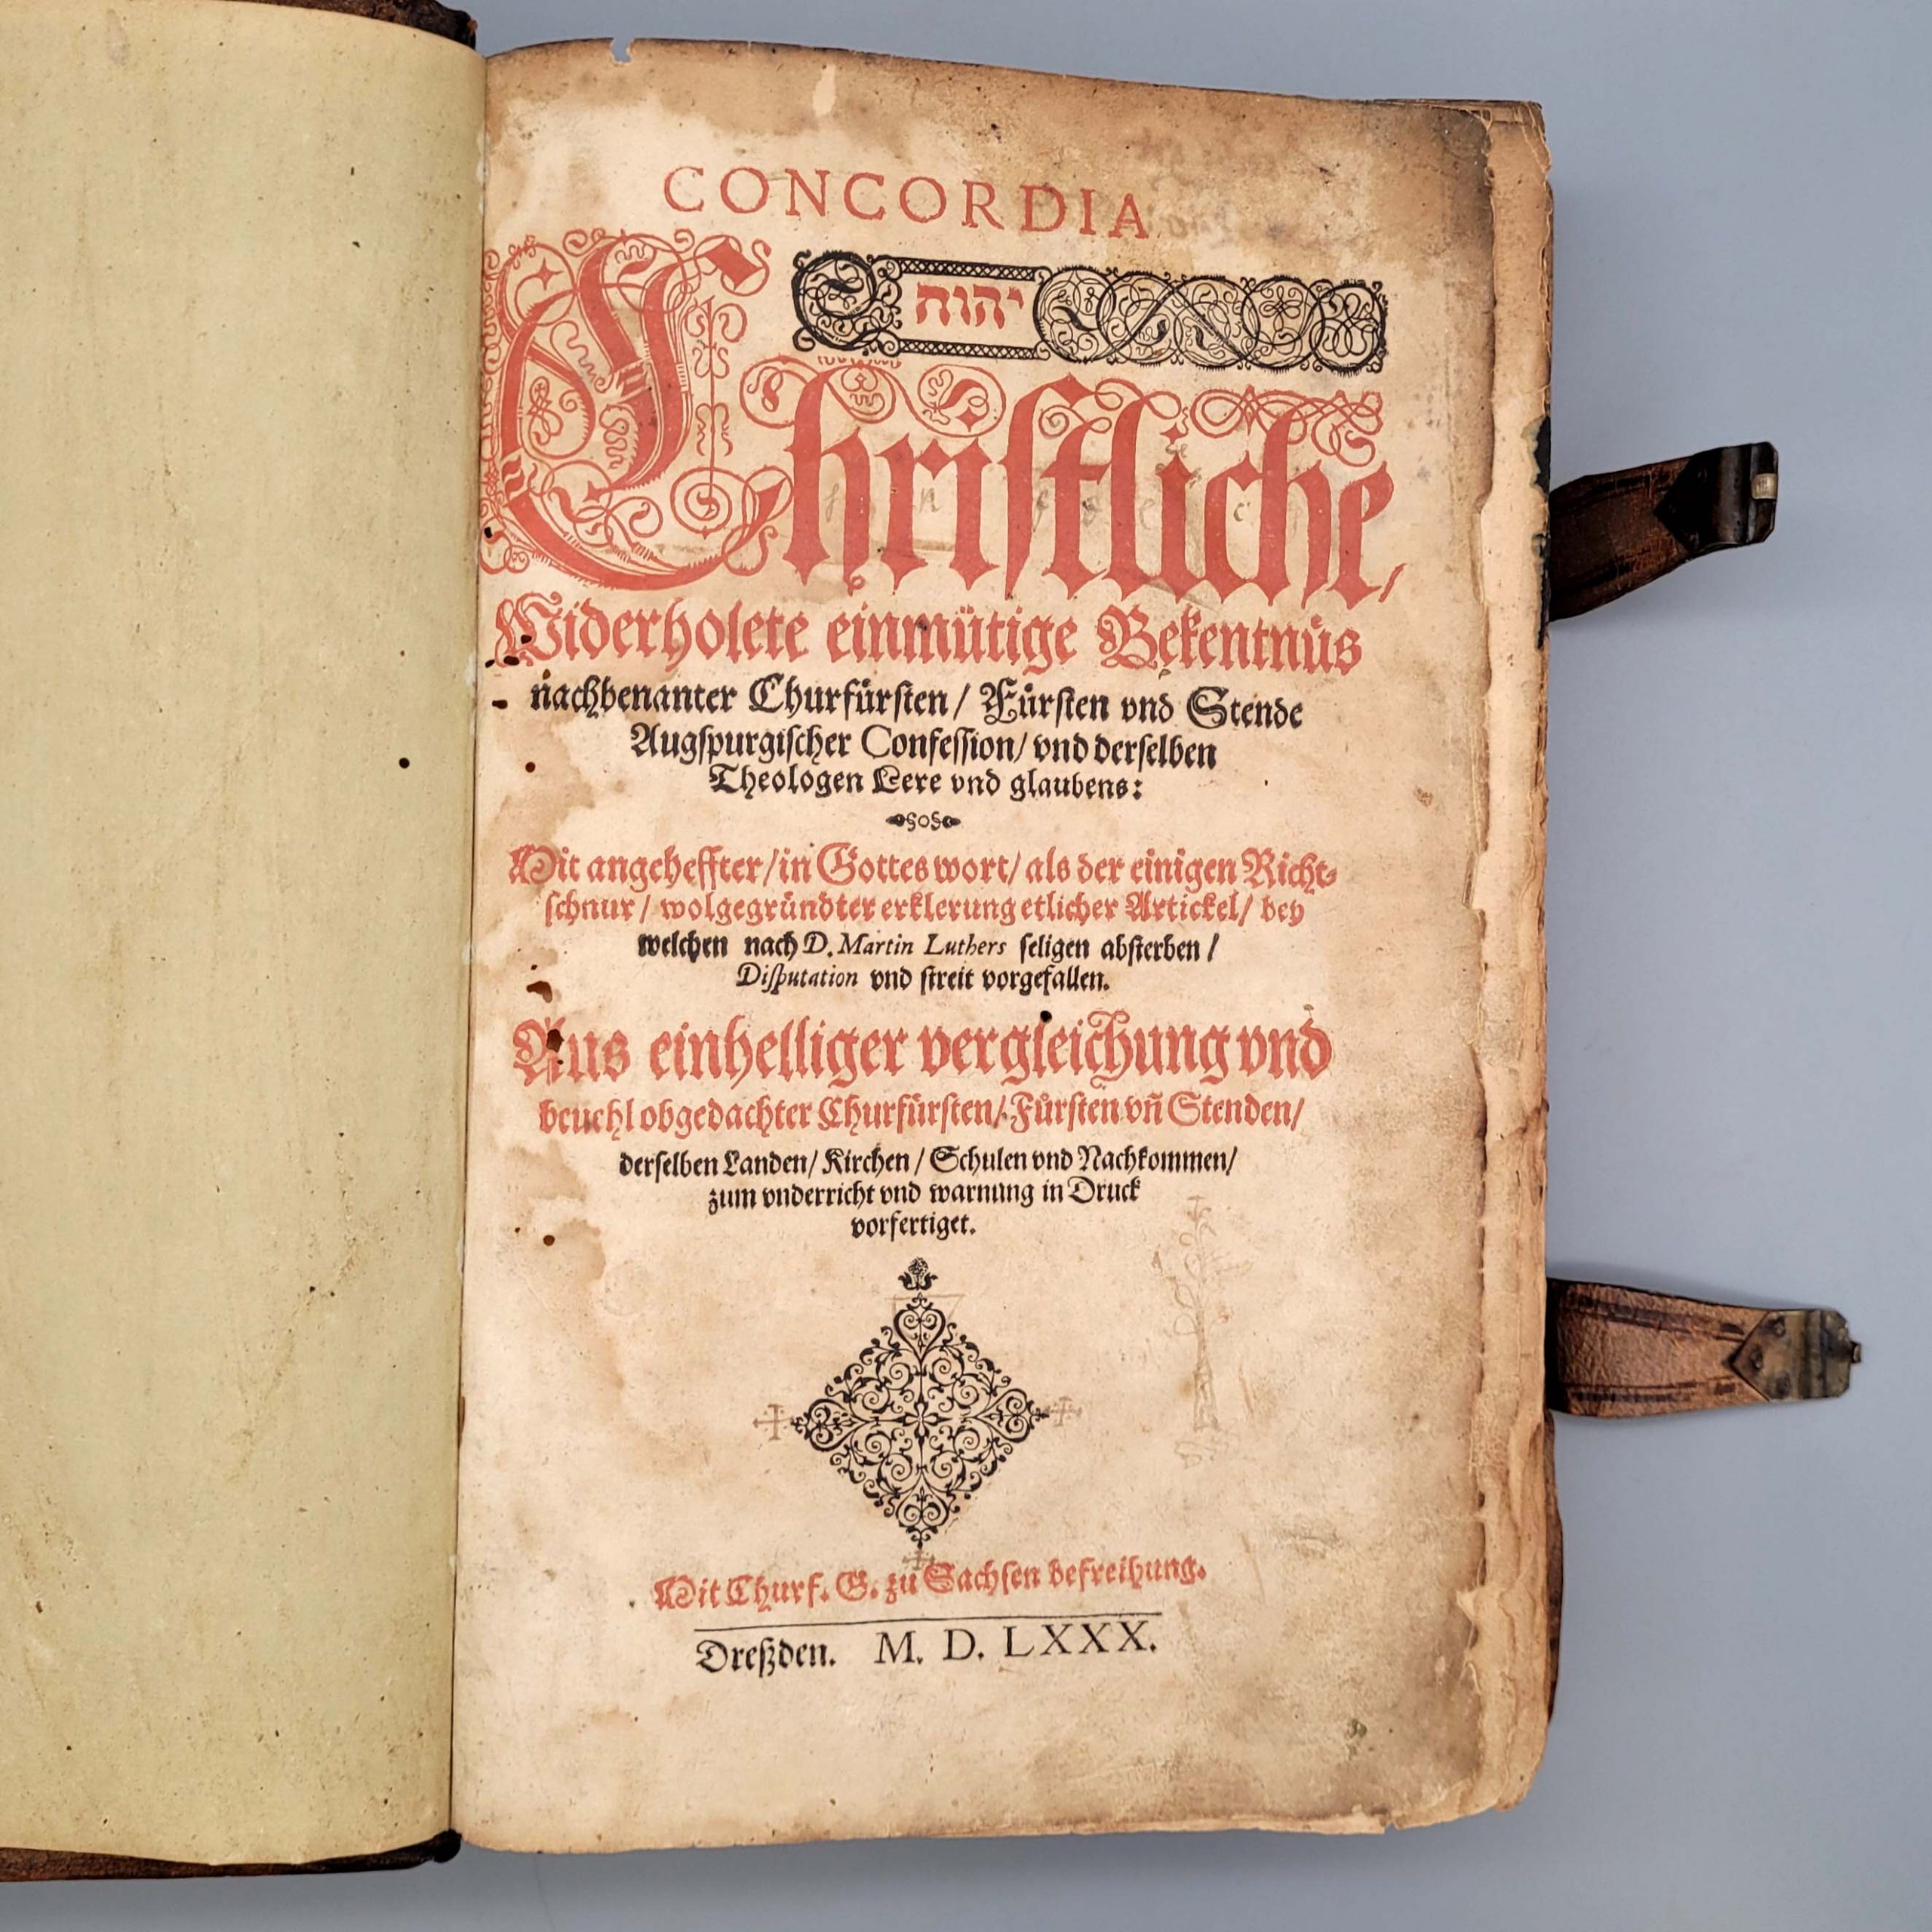 CONCORDIA
יהוה
Chriſtliche,
Widerholete einmütige Bekentnüs
nachbenanter Churfürſten / Fürſten vnd Stende
Augſpurgiſcher Confeſſion / vnd derſelben
Theologen Lere vnd glaubens:
Mit angeheffter / in Gottes wort / als der einigen Richt⸗
ſchnur / wolgegründter erklerung etlicher Artickel / bey
welchen nach D. Martin Luthers ſeligen abſterben /
Diſputation vnd ſtreit vorgefallen.
Aus einhelliger vergleichung vnd
beuehl obgedachter Churfürſten / Fürſten vñ Stenden /
derſelben Landen / Kirchen / Schulen vnd Nachkommen /
zum vnderricht vnd warnung in Druck
vorfertiget.
Mit Churf. G. zu Sachſen befreihung.
Dreßden. M. D. LXXX.